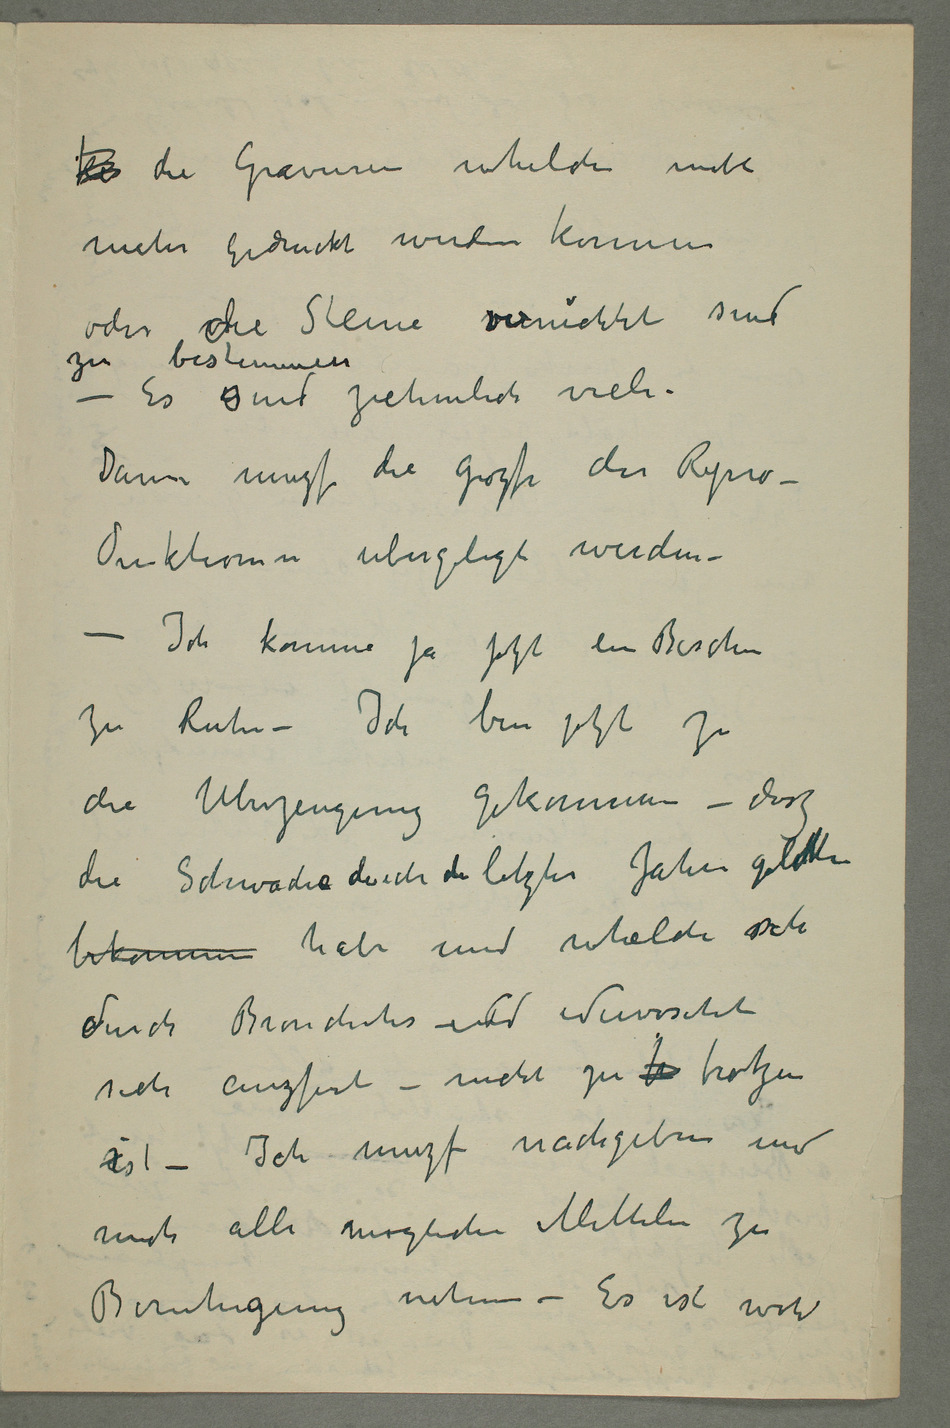 die Gravuren whelche nicht
mehr gedruckt werden konnen
oder die Steine vernichtet sind
zu bestimmen
– Es sind ziehmlich viele.
Dann muzf die grozfe der Repro–
duktionen ubergelegt werden–
– Ich komme ja jetzt ein Bischen
zu Ruhe – Ich bin jetzt zu
die Uberzeugung gekommen – dasz
die Schwäche die ich die letzten Jahre gelitten
bekommen habe und whelche sich
durch Bronchites und Nervositet
sich auzfert – nicht zu trotzen
ist – Ich muzf nachgeben und
mich alle mogliche Mittelen zu
Beruhigung nehmen – Es ist wohl